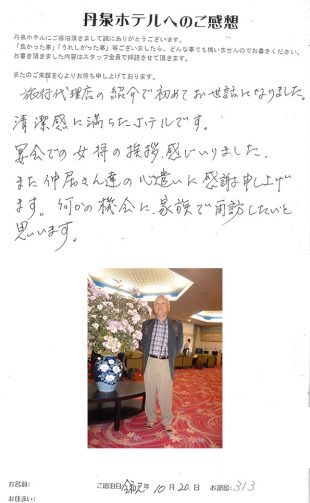 丹泉ホテルへのご感想
丹泉ホテルにご宿泊頂きまして誠にありがとうございます。
「良かった事」「うれしかった事」等ございましたら、どんな事でも構いませんのでお書きください。
お書き頂きました内容はスタッフ全員で拝読させて頂きます。
またのご来館を心よりお待ち申し上げております。
旅行代理店の紹介で初めてお世話になりました。
清潔感に満ちたホテルです。
宴会での女将の挨拶、感じいりました。
また仲居さん達の心遣いに感謝申し上げ
ます。何かの機会に、家族で再訪したいと
思います。
お名前:
ご宿泊日 年 10 月 20 日 お部屋: 313
お住まい: